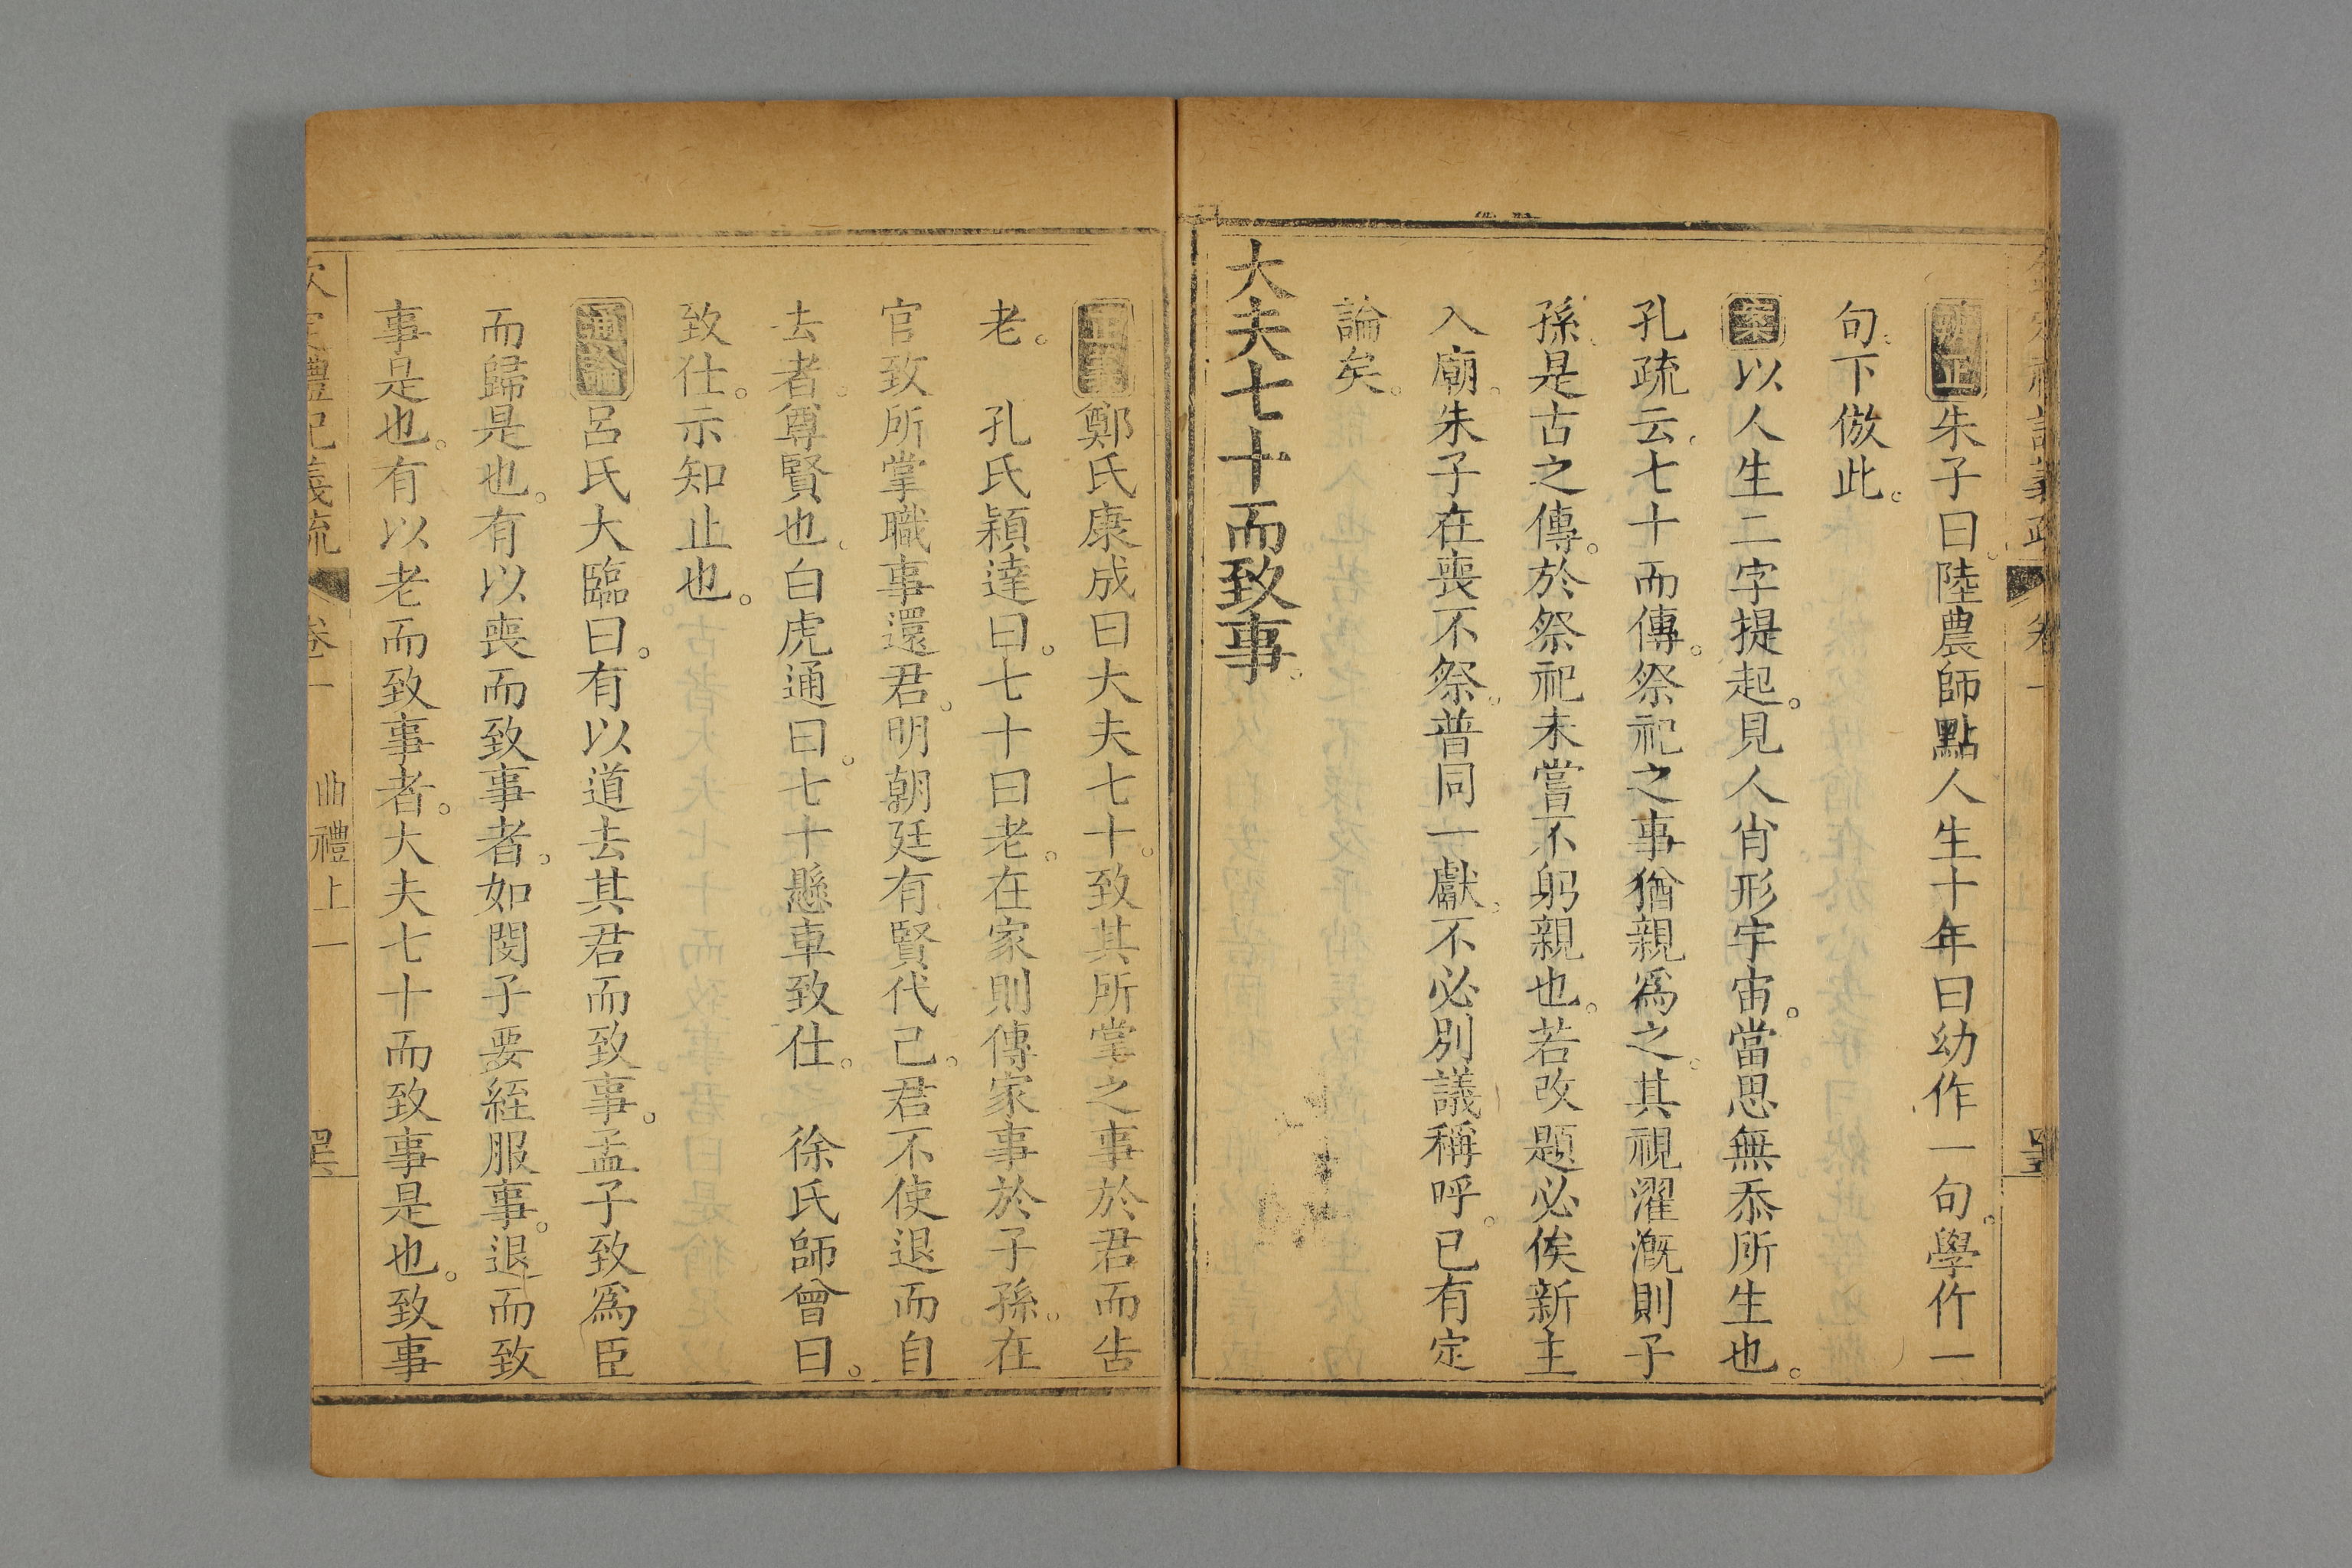 辨正朱子曰。陸農師點人生十年曰幼作一句。學作一
句。下倣此。
案以人生二字提起。見人肖形宇宙。當思無忝所生也。
孔疏云。七十而傳。祭祀之事猶親爲之。其視濯漑則子
孫。是古之傳。於祭祀未嘗不躬親也。若改題必俟新主
入廟。朱子在喪不祭。普同一獻。不必別議稱呼。已有定
論矣。
大夫七十而致事。
正義鄭氏康成曰大夫七十。致其所掌之事於君而告
老。 孔氏穎達曰。七十曰老。在家則傳家事於子孫。在
官致所掌職事還君。明朝廷有賢代己。君不使退而自
去者。尊賢也。白虎通曰。七十懸車致仕。 徐氏師曾曰。
致仕。示知止也。
通論呂氏大臨曰。有以道去其君而致事。孟子致爲臣
而歸是也。有以喪而致事者。如閔子要絰服事。退而致
事是也。有以老而致事者。大夫七十而致事是也。致事
禮記義疏 卷一 曲禮上一